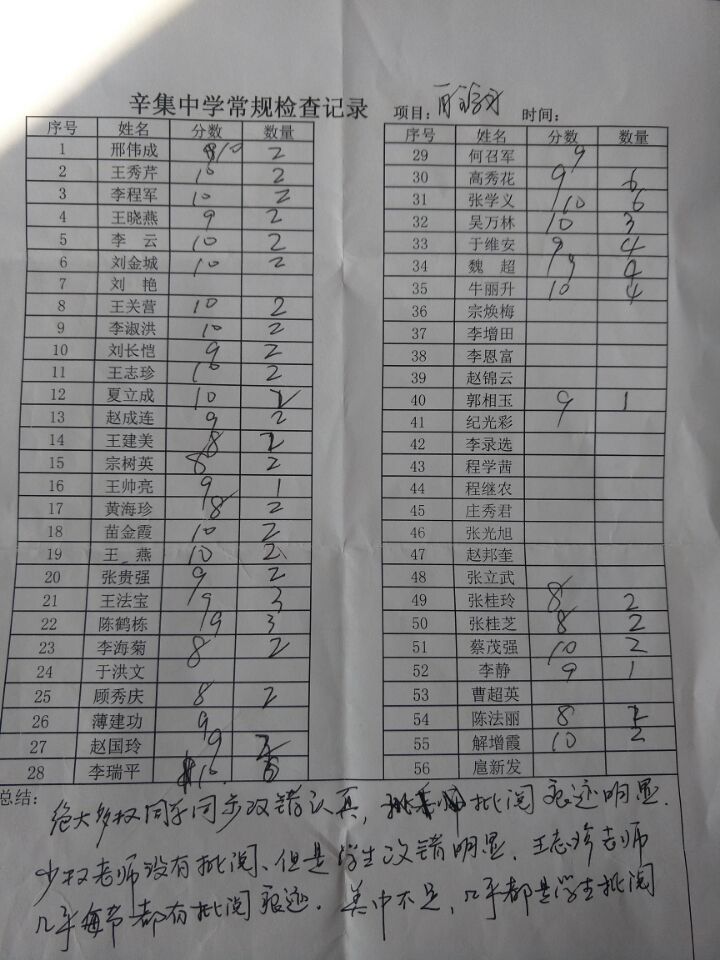 辛集中学常规检查记录 项目: 时间:
序号 姓名 分数 数量
1 邢伟成 10 2
2 王秀芹 10 2
3 李程军 10 2
4 王晓燕 9 2
5 李 云 10 2
6 刘金城 10 2
7 刘 艳
8 王关营 10 2
9 李淑洪 10 2
10 刘长恺 9 2
11 王志珍 10 2
12 夏立成 10 2
13 赵成连 9 2
14 王建美 8 2
15 宗树英 8 2
16 王帅亮 9 1
17 黄海珍 8 2
18 苗金霞 10 2
19 王 燕 10 2
20 张贵强 9 2
21 王法宝 9 3
22 陈鹤栋 9 3
23 李海菊 8 2
24 于洪文
25 顾秀庆 8 2
26 薄建功 9
27 赵国玲 9 2
28 李瑞平 10
序号 姓名 分数 数量
29 何召军 9
30 高秀花 9 6
31 张学义 10 6
32 吴万林 10 3
33 于维安 9 4
34 魏 超 9 4
35 牛丽升 10 4
36 宗焕梅
37 李增田
38 李恩富
39 赵锦云
40 郭相玉 9 1
41 纪光彩
42 李录选
43 程学茜
44 程继农
45 庄秀君
46 张光旭
47 赵邦奎
48 张立武
49 张桂玲 8 2
50 张桂芝 8 2
51 蔡茂强 10 2
52 李静 9 1
53 曹超英
54 陈法丽 8 2
55 解增霞 10 2
56 扈新发
总结: 绝大多数同学同步改错认真, 批阅痕迹明显.
少数老师没有批阅、但是学生改错明显. 王志珍老师
几乎每节都有批阅痕迹. 美中不足, 几乎都是学生批阅